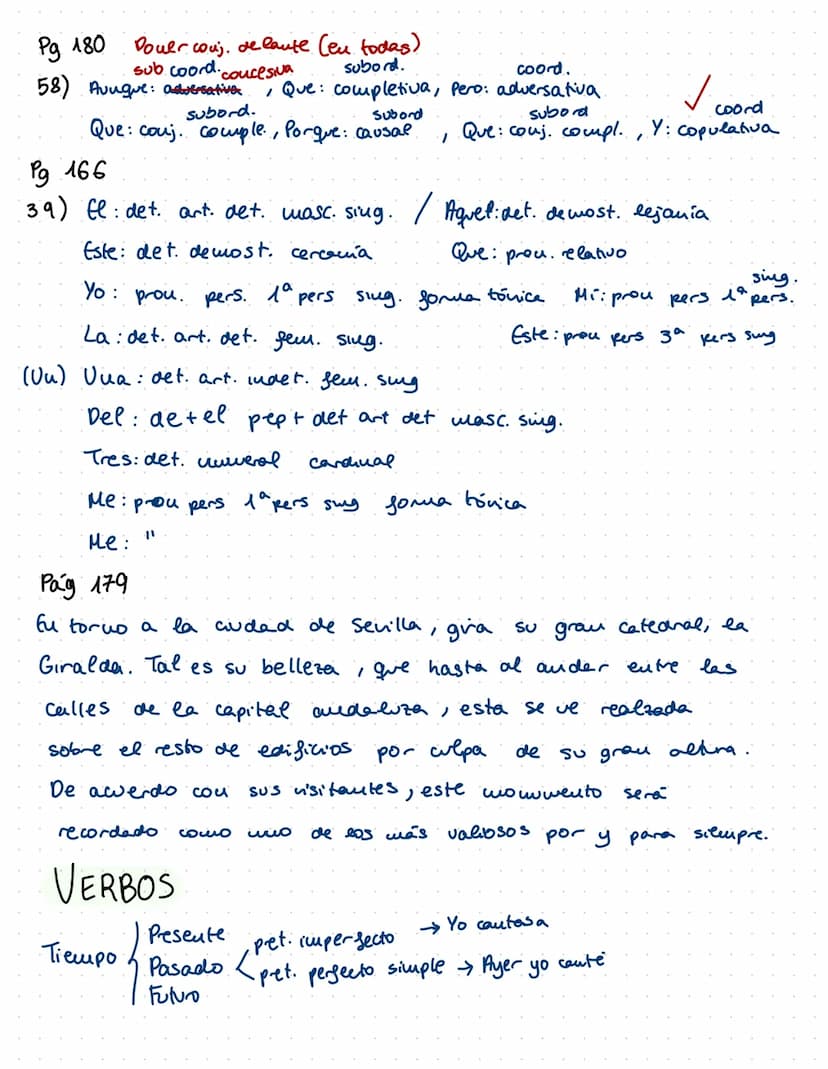 Pg 180 Poner conj. delante (en todas)
sub coord. concesiva subord. coord.
58) Aunque: adversativa, Que: completiva, Pero: adversativa
subord. subord subord coord
Que: conj. comple., Porque: causal, Que: conj. compl., Y: copulativa
Pg 166
39) El: det. art. det. masc. sing. / Aquel: det. demost. lejanía
Este: det. demost. cercanía Que: pron. relativo
sing.
Yo: pron. pers. 1ª pers sing. forma tónica Mi: pron pers 1ª pers.
La: det. art. det. fem. sing. Este: pron pers 3ª pers sing
(Un) Una: det. art. indet. fem. sing
Del: de+el prep + det art det masc. sing.
Tres: det. numeral cardinal
Me: pron pers 1ª pers sing forma tónica
Me: "
Pág 179
En torno a la ciudad de Sevilla, gira su gran catedral, la
Giralda. Tal es su belleza, que hasta al andar entre las
calles de la capital andaluza, esta se ve realzada
sobre el resto de edificios por culpa de su gran altura.
De acuerdo con sus visitantes, este monumento será
recordado como uno de los más valiosos por y para siempre.
VERBOS
Presente
pet. imperfecto → Yo cantaba
Tiempo Pasado
pet. perfecto simple → Ayer yo canté
Futuro